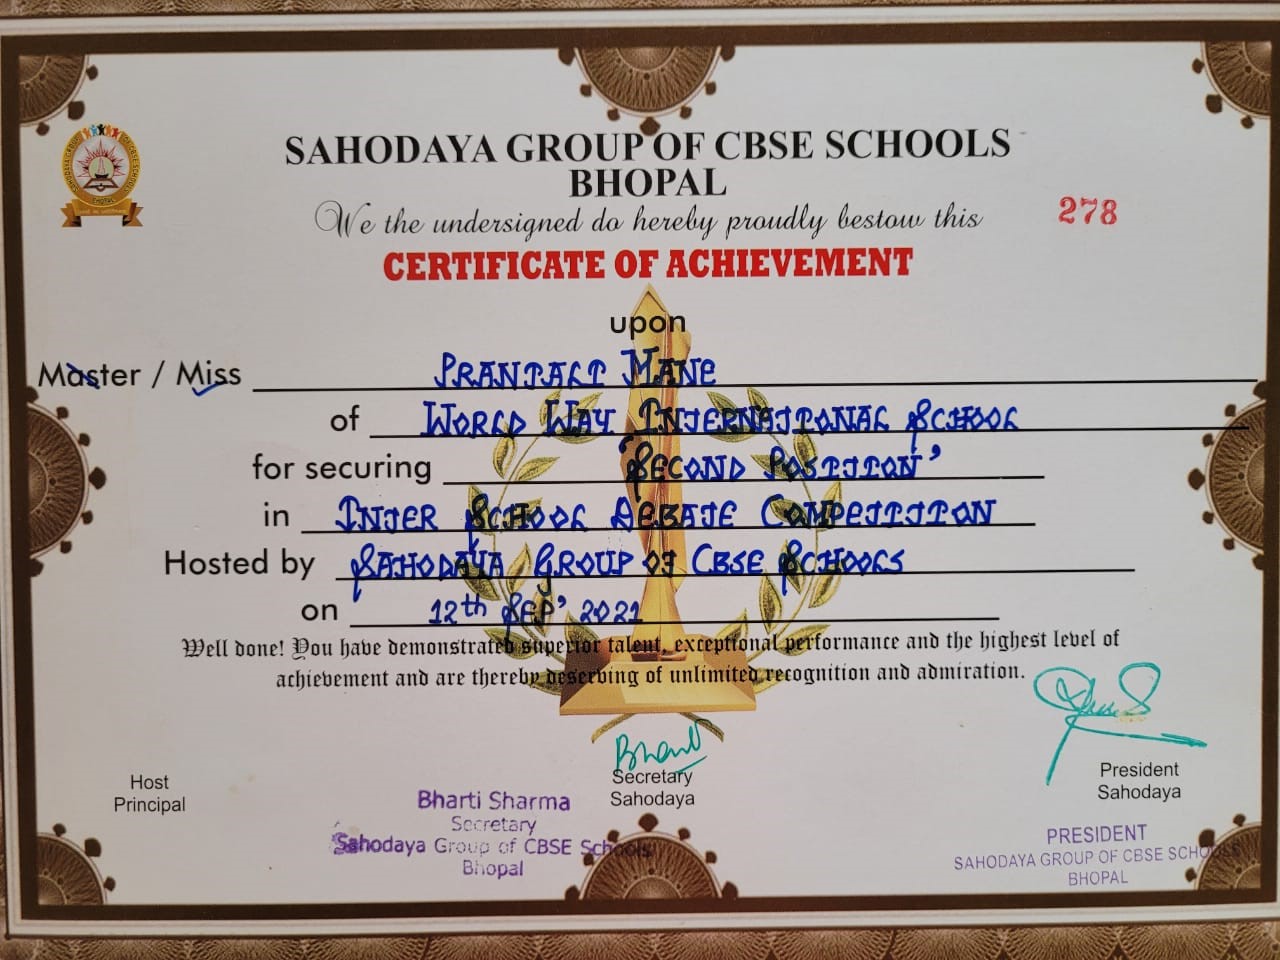 SAHODAYA GROUP OF CBSE SCHOOLS
BHOPAL
We the undersigned do hereby proudly bestow this
278
CERTIFICATE OF ACHIEVEMENT
upon
Master / Miss PRANJALI MANE
of WORLD WAY INTERNATIONAL SCHOOL
for securing 'SECOND POSITION'
in INTER SCHOOL DEBATE COMPETITION
Hosted by SAHODAYA GROUP OF CBSE SCHOOLS
on 12th SEP' 2021
Well done! You have demonstrated superior talent, exceptional performance and the highest level of
achievement and are thereby deserving of unlimited recognition and admiration.
Host
Principal
Secretary
Sahodaya
Bharti Sharma
Secretary
Sahodaya Group of CBSE Schools
Bhopal
President
Sahodaya
PRESIDENT
SAHODAYA GROUP OF CBSE SCHOOLS
BHOPAL